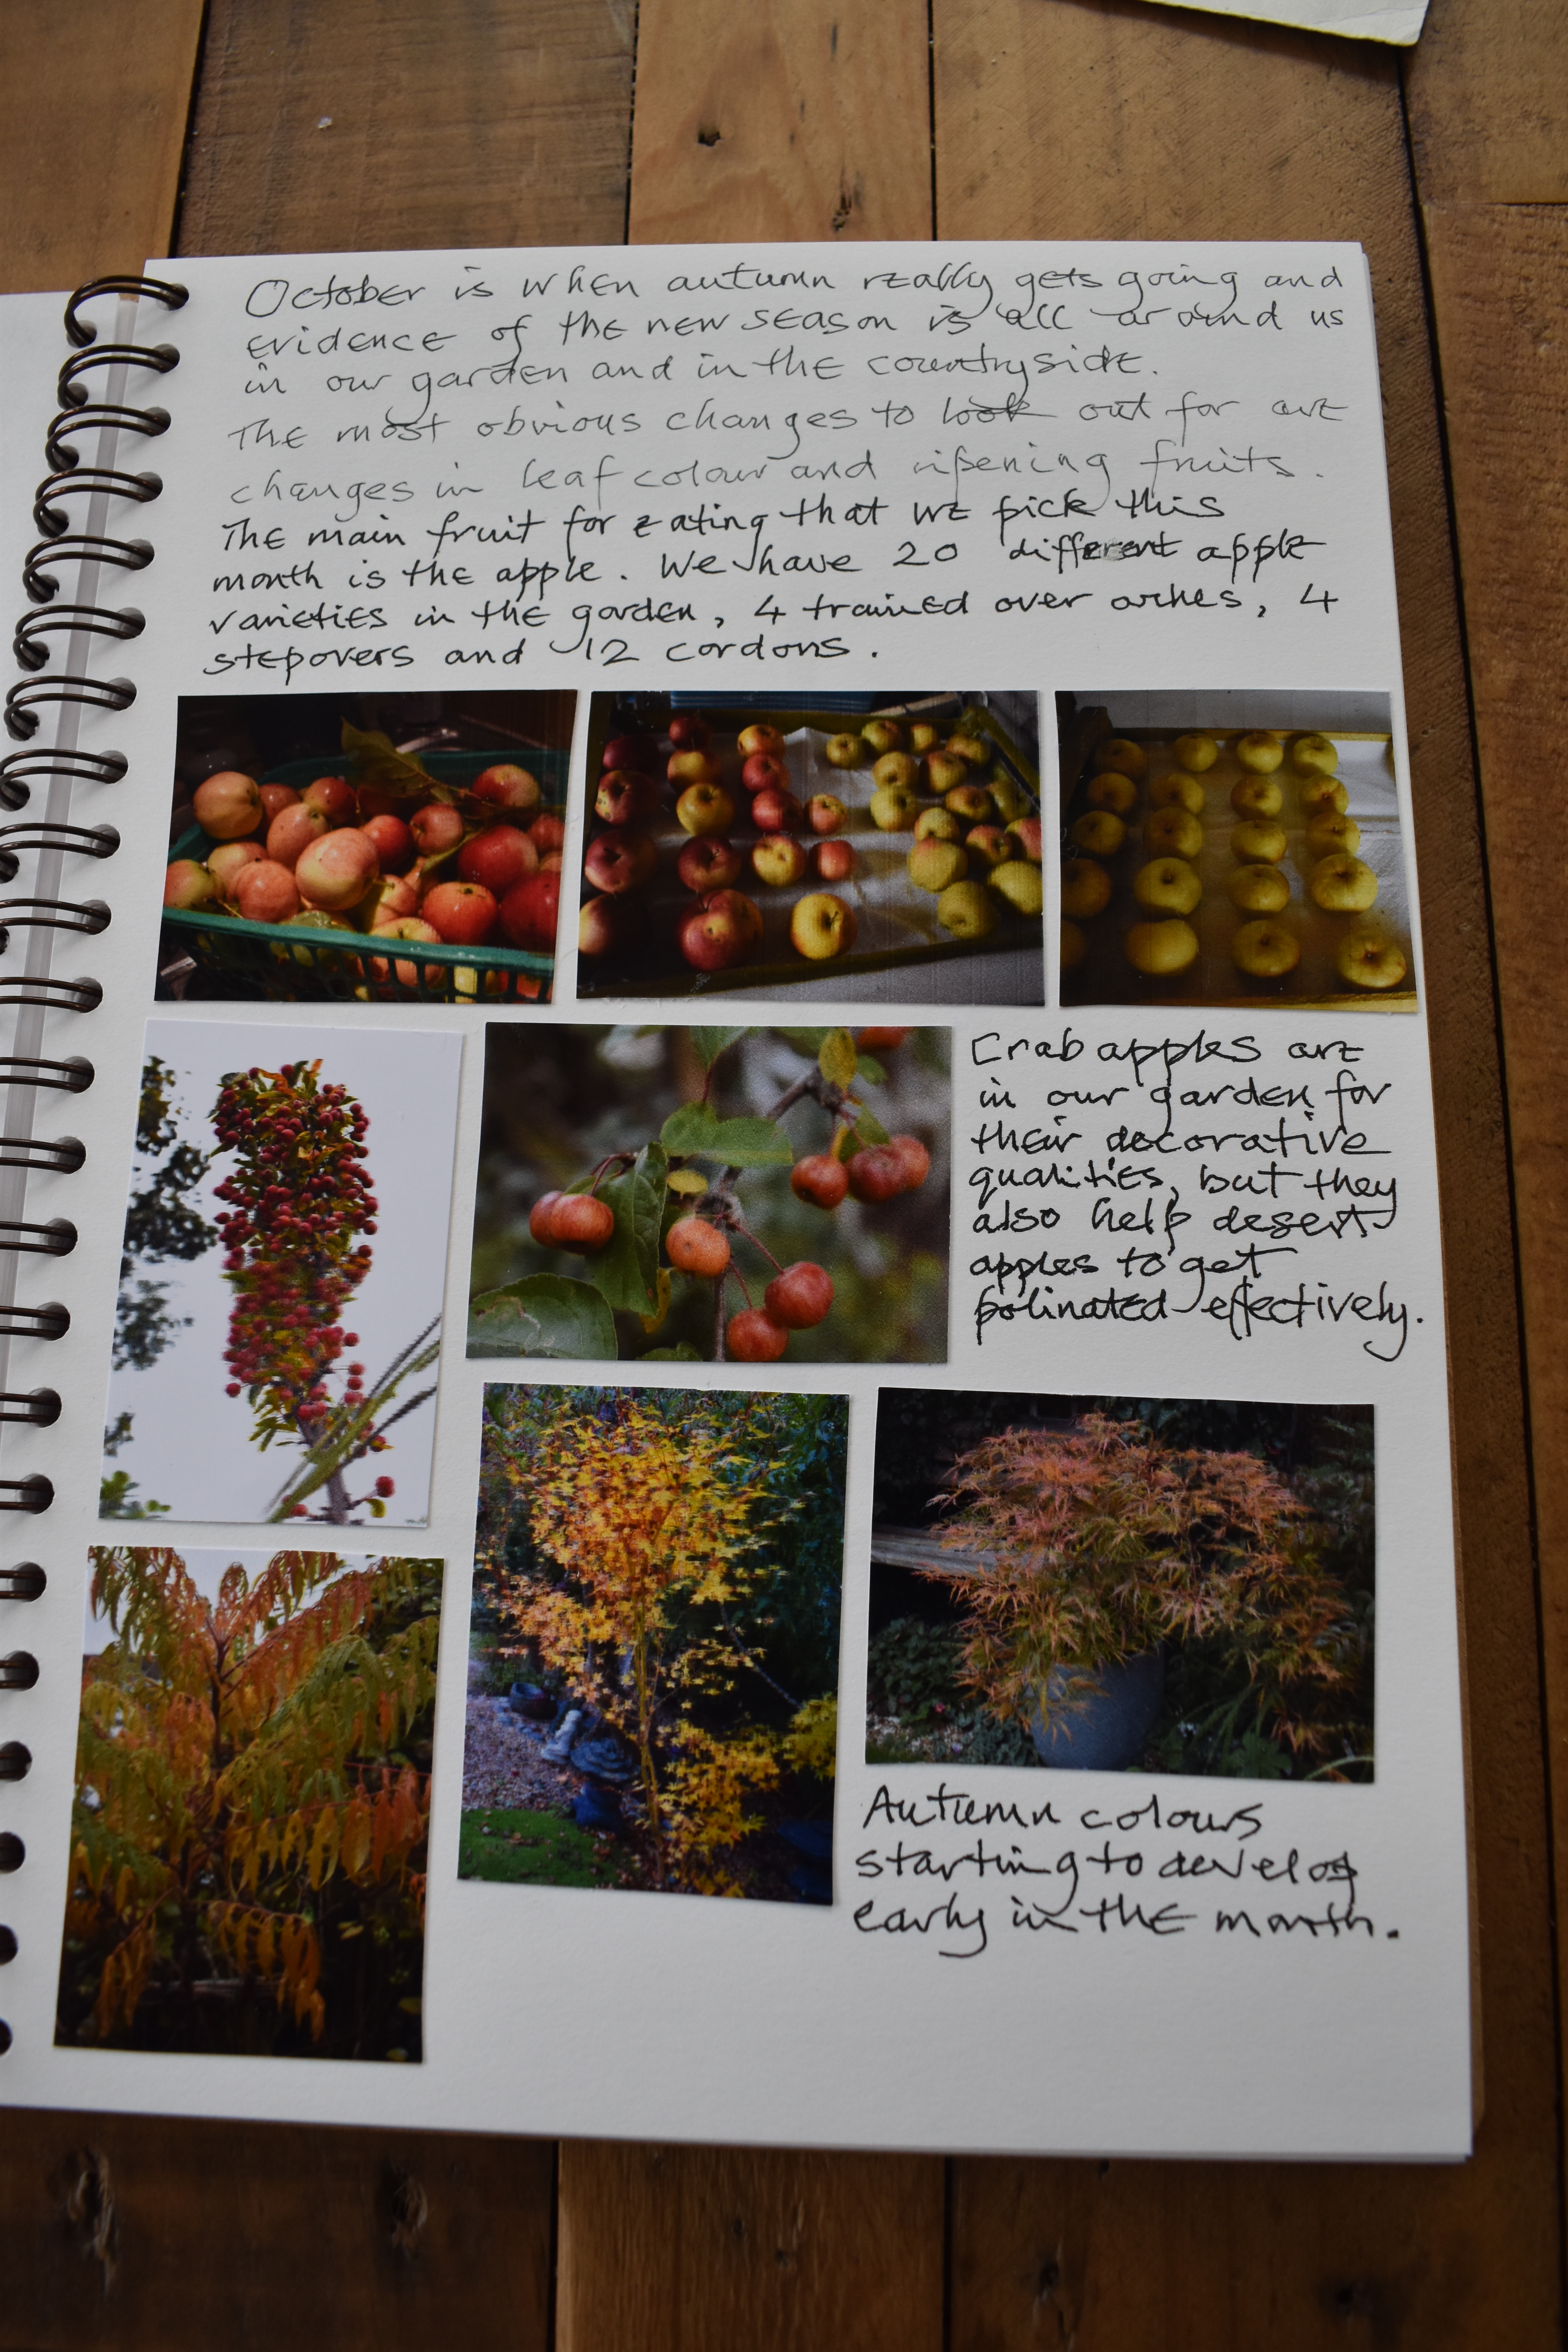 October is when autumn really gets going and
evidence of the new season is all around us
in our garden and in the countryside.
The most obvious changes to look out for are
changes in leaf colour and ripening fruits.
The main fruit for eating that we pick this
month is the apple. We have 20 different apple
varieties in the garden, 4 trained over arches, 4
stepovers and 12 cordons.
Crab apples are
in our garden for
their decorative
qualities, but they
also help desert
apples to get
polinated effectively.
Autumn colours
starting to develop
early in the month.